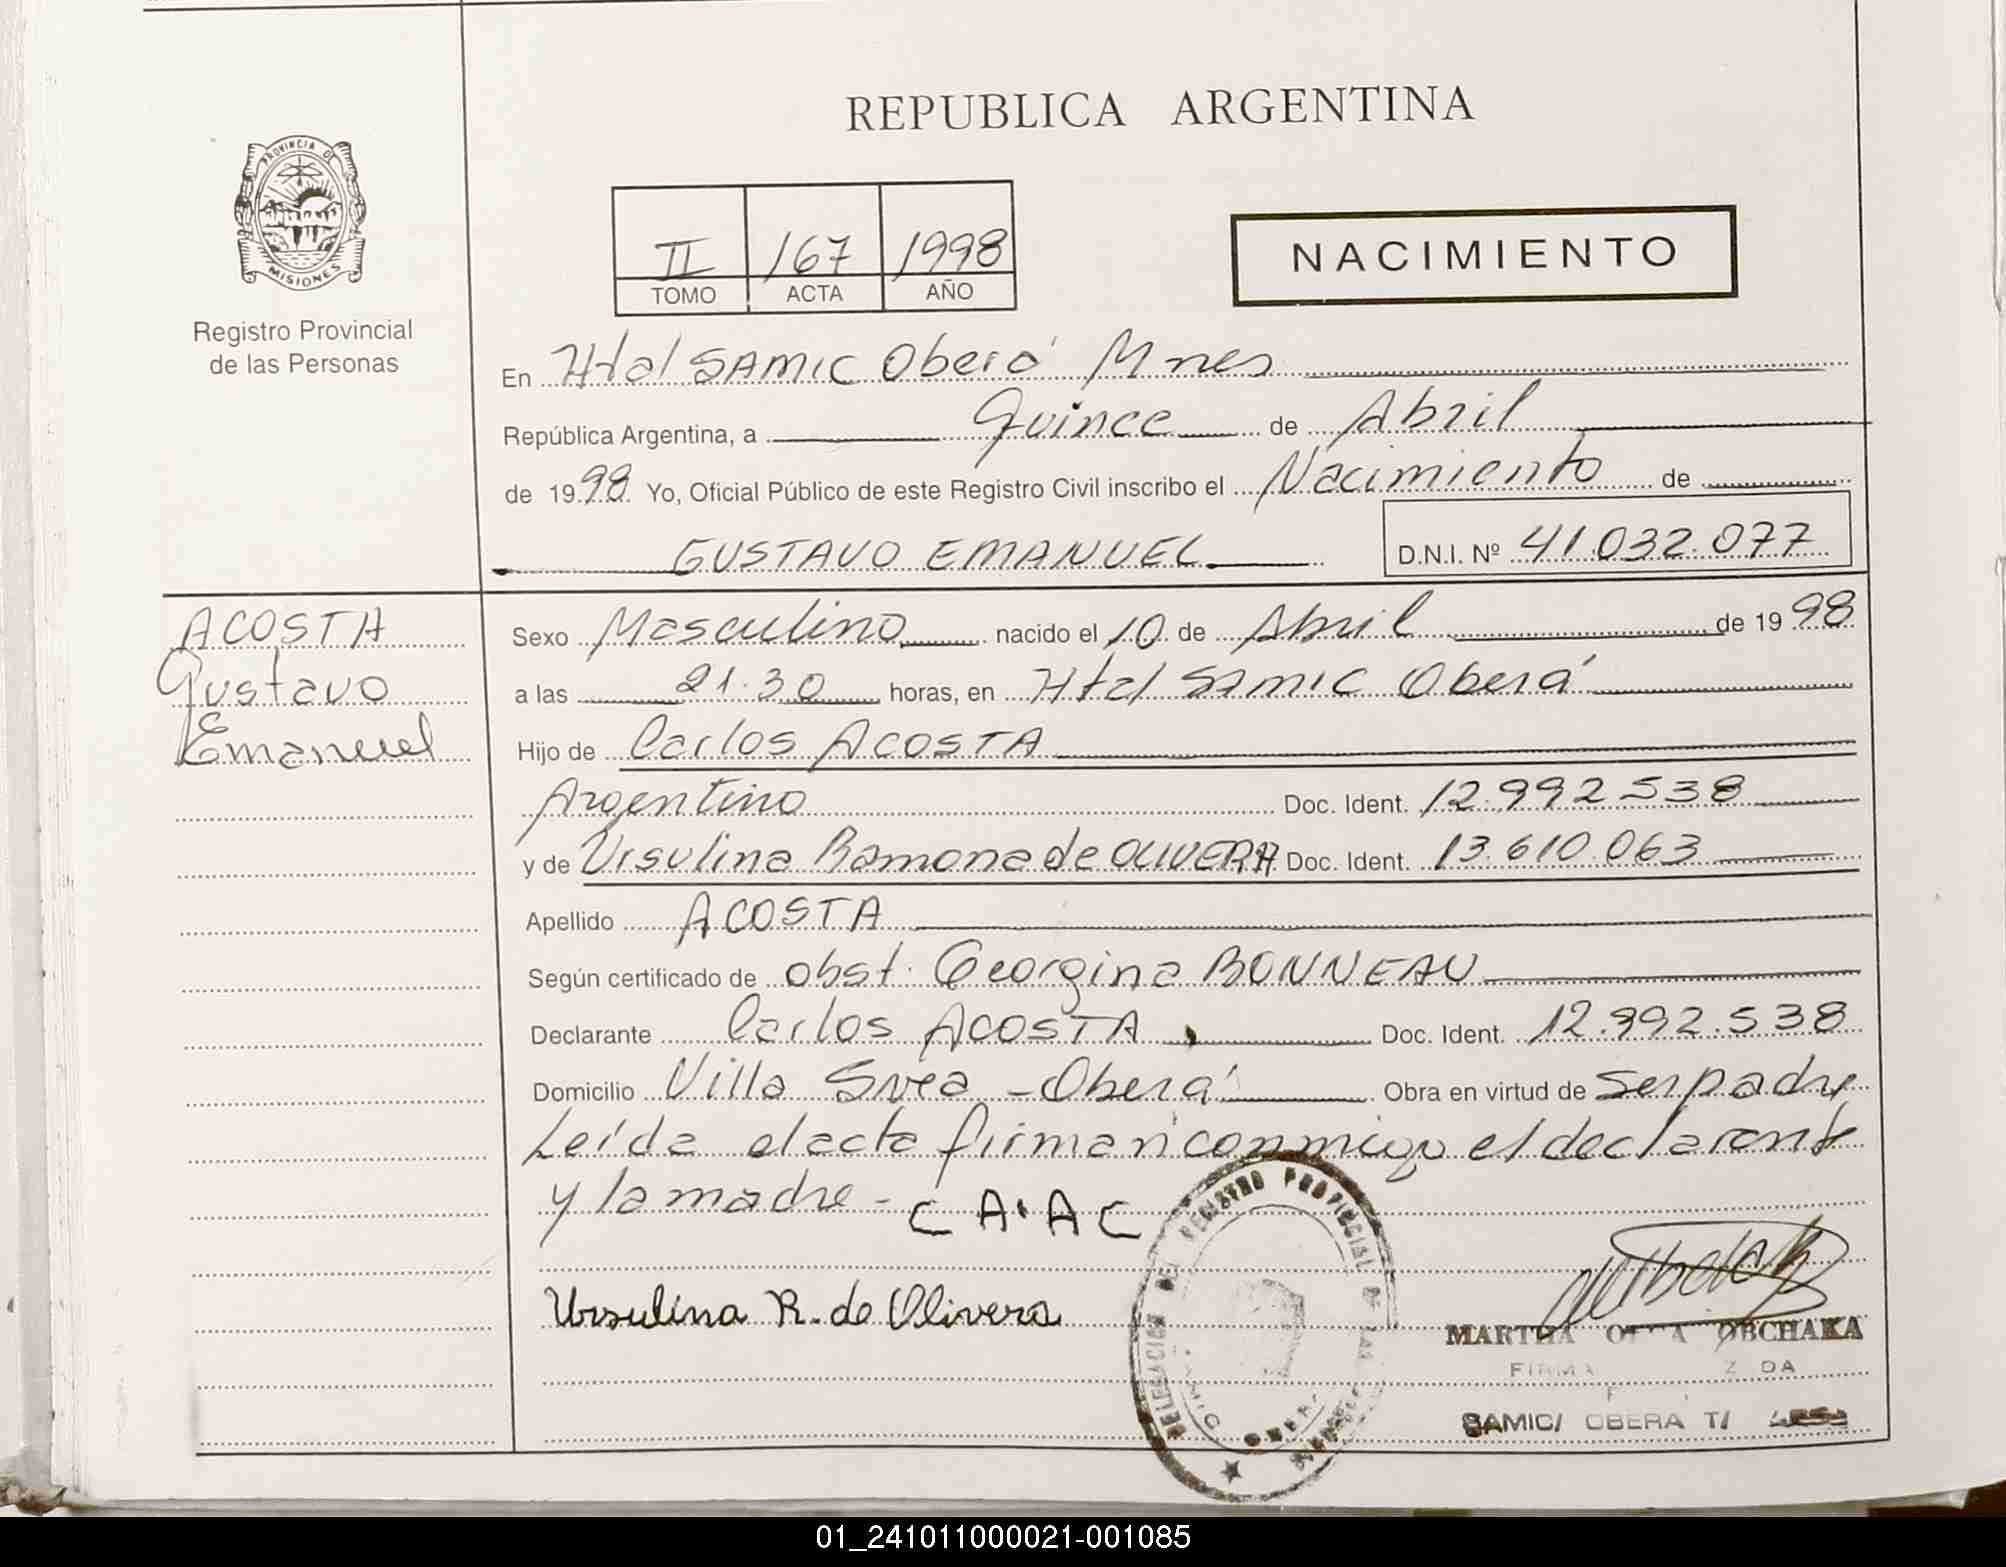 REPUBLICA ARGENTINA
PROVINCIA DE
MISIONES
Registro Provincial
de las Personas
II 167 1998
TOMO ACTA AÑO
NACIMIENTO
En Htal SAMIC Oberá Mnes
República Argentina, a Quince de Abril
de 1998 Yo, Oficial Público de este Registro Civil inscribo el Nacimiento de
GUSTAVO EMANUEL D.N.I. Nº 41.032.077
ACOSTA
Gustavo
Emanuel
Sexo Masculino nacido el 10 de Abril de 1998
a las 21.30 horas, en Htal SAMIC Oberá
Hijo de Carlos ACOSTA
Argentino Doc. Ident. 12.992.538
y de Ursulina Ramona de OLIVERA Doc. Ident. 13.610.063
Apellido ACOSTA
Según certificado de obst. Georgina BONNEAU
Declarante Carlos ACOSTA Doc. Ident. 12.992.538
Domicilio Villa Svea - Oberá Obra en virtud de ser padre
Leída el acta firman conmigo el declarante
y la madre -
CA AC
Ursulina R. de Olivera
DELEGACION DEL REGISTRO PROVINCIAL DE LAS
MARTHA OBCHAKA
SAMIC/ OBERA T/
01_241011000021-001085